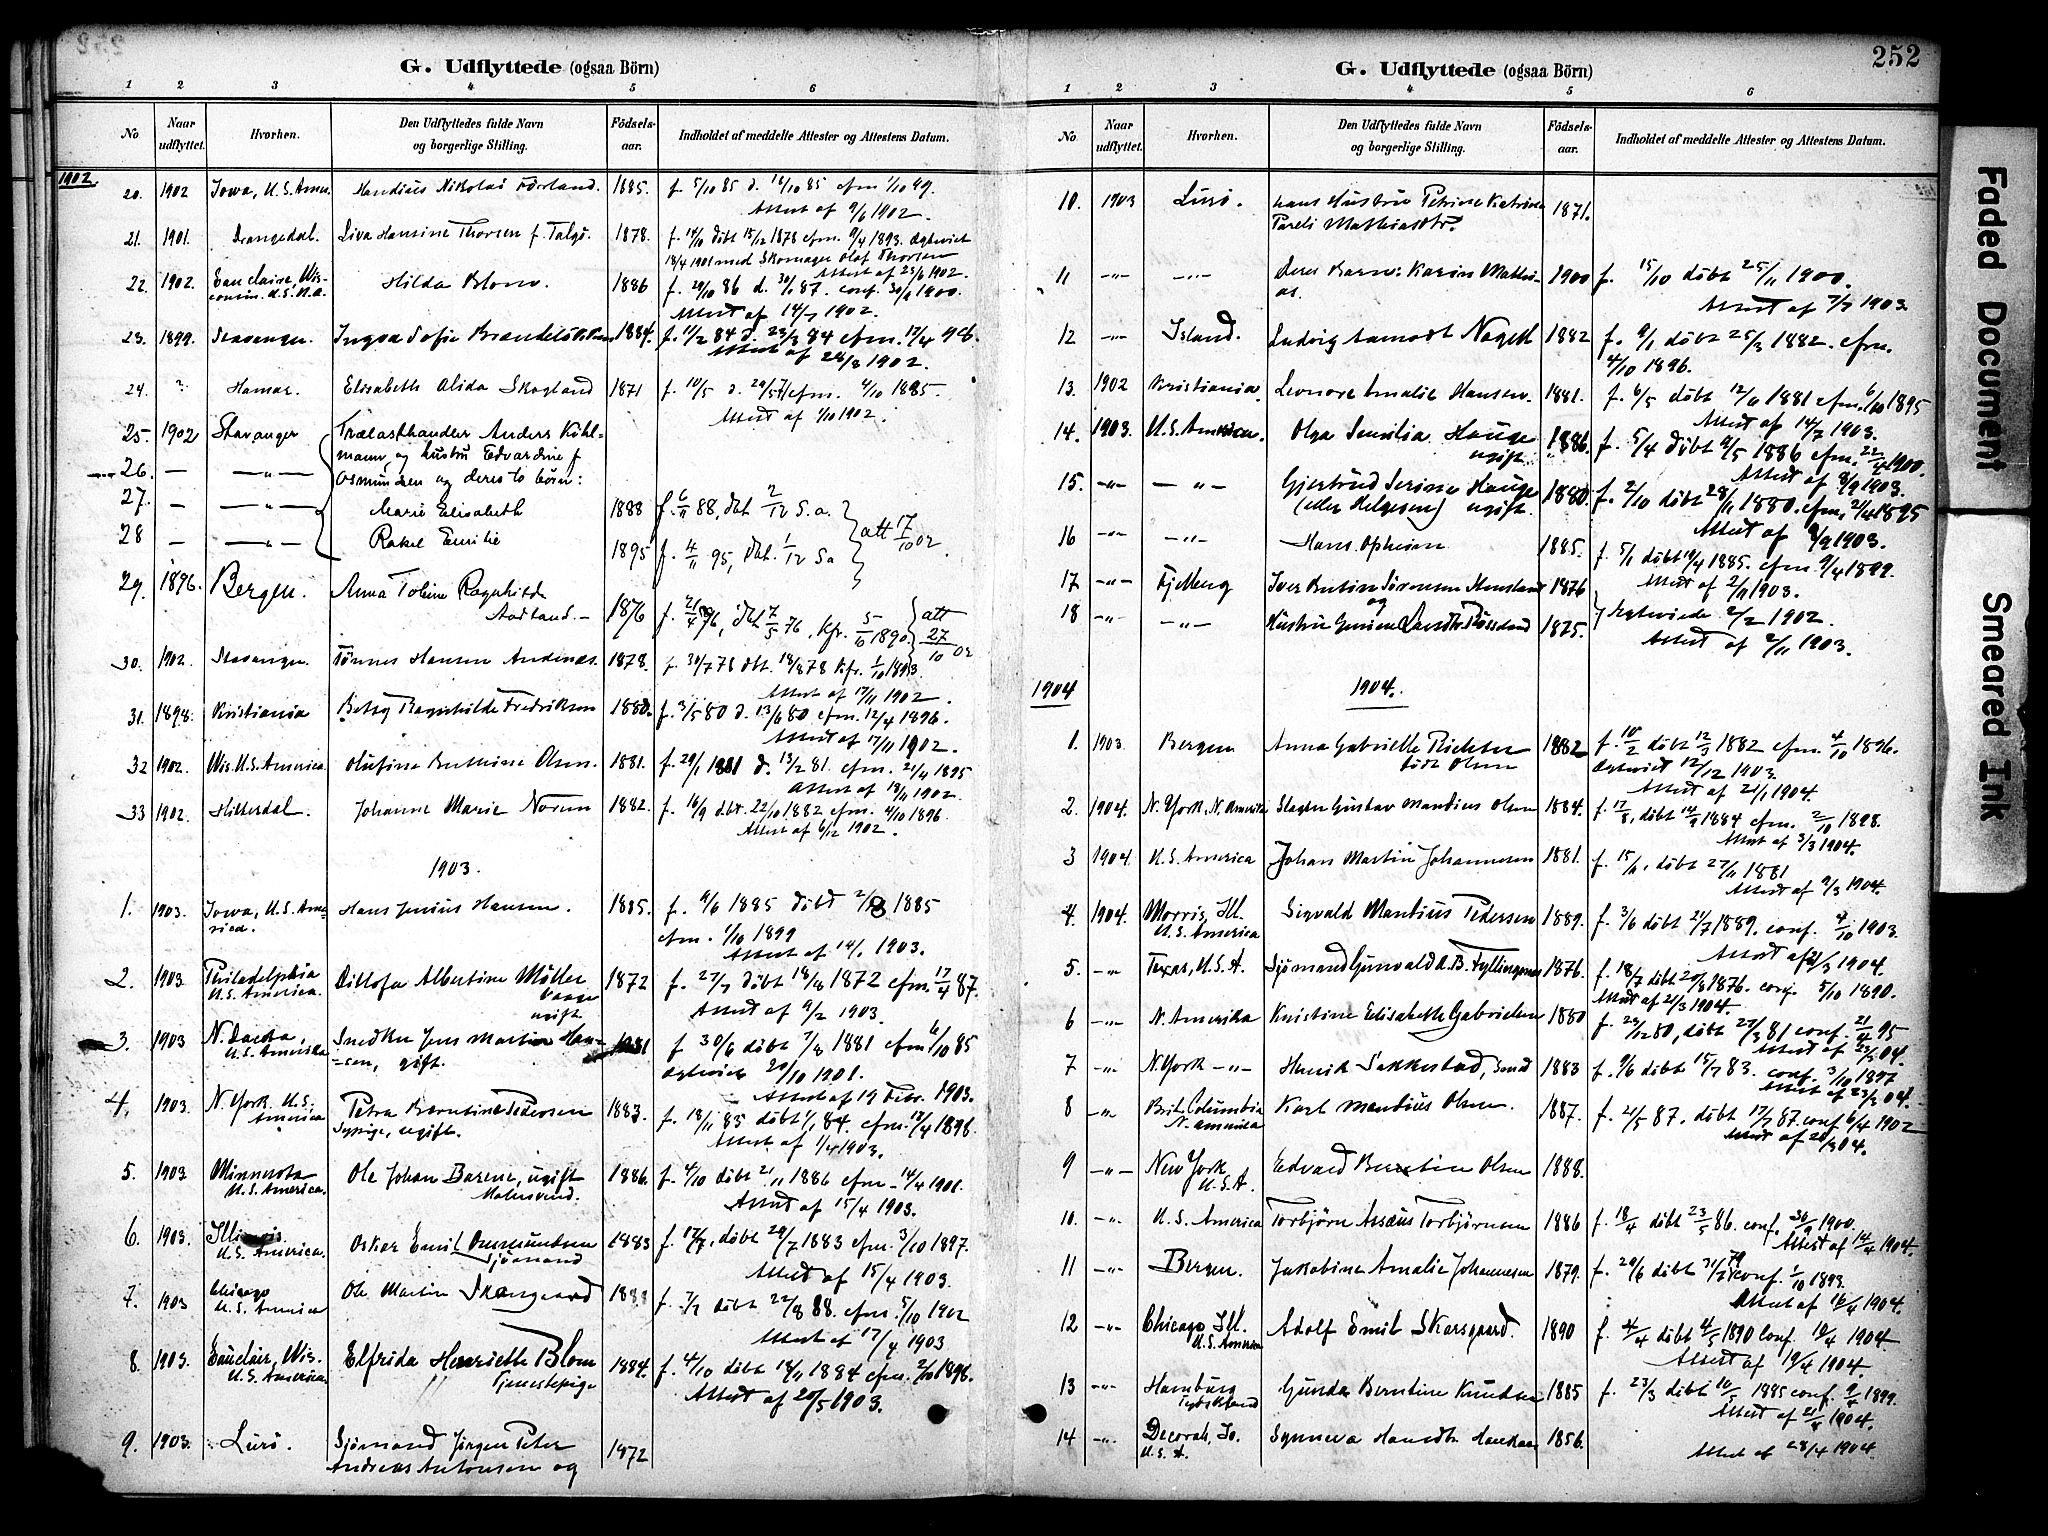 G. Udflyttede (ogsaa Börn)
1 2 3 4 5 6
No Naar udflyttet. Hvorhen. Den Udflyttedes fulde Navn og borgerlige Stilling. Födsels-aar. Indholdet af meddelte Attester og Attestens Datum.
1902
20. 1902 Iowa, U.S. Amer. Mandius Nikolai 1885. f. 5/10 85 d. 18/10 85 cfm 1/10 99.
Attest af 9/6 1902.
21. 1901. Drangedal. Liva Hansine Thorsen f. Talgø. 1878. f. 14/10 döbt 15/12 1878 cfm. 9/4 1893. Egteviet
18/4 1901 med Skomager Olaf Thorsen
Attest af 23/6 1902.
22. 1902. Eau Claire, Wis-
consin. U.S. N.A. Hilda Blom 1886 f. 29/10 86 d. 30/1 87. conf. 30/9 1900.
Attest af 14/7 1902.
23. 1899. Stavanger. Ingva Sofie 1884. f. 11/2 84 d. 23/3 84 cfm. 17/4 98.
Attest af 28/8 1902.
24. Hamar. Elisabeth Alida Skogland 1871 f. 10/5 d. 29/5 71 cfm. 4/10 1885.
Attest af 1/10 1902.
25. 1902 Stavanger Trælasthandler Anders Kihl-
26. — —"— mann, og hustru Edvardine f
Osmundsen og deres to börn:
27. — —"— Marie Elisabeth 1888 f. 6/11 88, dbt 2/12 S.a.
28 — —"— Rakel Emilie 1895 f. 4/11 95, dbt. 1/12 Sa att 17/10 02.
29. 1896. Bergen. Anna Toline Ragnhilde
Aadland. — 1876 f. 21/4 76, dbt 7/5 76, kfr. 5/10 1890 att 27/10 02
30. 1902. Stavanger. Tönnes Hansen Andenæs. 1878. f. 30/7 78 dbt. 18/8 78 kfr. 1/10 1893
Attest af 17/11 1902.
31. 1898. Kristiania Betsy Ragnhilde Fredriksen 1880. f. 3/5 80 d. 13/6 80 cfm. 12/4 1896.
Attest af 17/11 1902.
32 1902. Wis. U.S. America. Olufine Bertine Olsen. 1881. f. 29/1 1881 d. 13/2 81. cfm. 21/4 1895
Attest af 18/11 1902.
33 1902. Hitterdal. Johanne Marie Noren 1882. f. 16/9 dbt. 22/10 1882 cfm. 4/10 1896
Attest af 6/12 1902.
1903.
1. 1903. Iowa, U.S. Ame-
rica. Hans Junius Hansen. 1885. f. 9/6 1885 döbt 2/8 1885
cfm. 1/10 1899
Attest af 14/1 1903.
2. 1903 Philadelphia
U.S. America. Ditlofa Albertine Möller
ugift 1872 f. 27/7 döbt 18/8 1872 cfm. 17/4 87.
Attest af 9/2 1903.
3. 1903 N. Dacota,
U.S. Amerika Snedker Jens Martin Han-
-sen, gift. 1881 f 30/6 döbt 7/8 1881 cfm 6/10 85
Egteviet 20/10 1901.
Attest af 19 Febr. 1903.
4. 1903. N. York U.S.
America Petra Berntine Pedersen
Sypige, ugift. 1883. f. 18/11 83 döbt 1/1 84. cfm. 17/4 1898.
Attest af 1/4 1903.
5. 1903 Minnesota
U.S. America. Ole Johan Barene, ugift
Malersvend. 1886. f. 4/10 döbt 21/11 1886 cfm - 14/4 1901.
Attest af 15/4 1903.
6. 1903. Illinois
U.S. America. Oskar Emil Osmundsen
Sjömand 1883 f. 17/7. döbt 29/7 1883 cfm. 3/10 1897.
Attest af 15/4 1903.
7. 1903 Chicago
U.S. America Ole Martin Skarsgaard 1888 f. 7/7 döbt 22/8 88. cfm. 5/10 1902
Attest af 17/4 1903
8. 1903. Eauclair, Wis.
U.S. America. Elfrida Henriette Blom
Tjenestepige 1884. f. 4/10 döbt 18/11 1884 cfm. 2/10 1898.
Attest af 20/5 1903.
9. 1903. Lurö. Sjömand Jörgen Peter
Andreas Antonsen og 1872
252
G. Udflyttede (ogsaa Börn)
1 2 3 4 5 6
No Naar udflyttet. Hvorhen. Den Udflyttedes fulde Navn og borgerlige Stilling. Födsels-aar. Indholdet af meddelte Attester og Attestens Datum.
10. 1903 Lurö. hans Hustru Petrine Katrine
Pareli Mathiasdtr. 1871.
11 —"— —"— Deres Barn: Karin Mathi-
as. 1900 f. 15/10 döbt 25/11 1900.
Attest af 7/7 1903.
12 —"— Island. Ludvig Nagell 1882 f. 9/1 döbt 25/3 1882. cfm.
4/10 1896.
13. 1902 Kristiania Leonore Amalie Hansen. 1881. f. 6/5 döbt 12/6 1881 cfm. 6/10 1895
Attest af 14/7 1903.
14. 1903. U.S. America. Olga Hauge
ugift. 1886. f. 5/4 döbt 9/5 1886 cfm. 22/4 1900.
Attest af 8/9 1903.
15. —"— —"— Gjertrud Serine Hauge
(eller Helgesen) ugift. 1880. f. 2/10 döbt 28/11 1880. cfm. 2/4 1895
Attest af 8/9 1903.
16 —"— —"— Hans Opheim 1885. f. 5/1 döbt 19/4 1885. cfm. 9/4 1899.
Attest af 2/11 1903.
17 —"— Fjelberg Iver Sörensen 1876
og
18 —"— —"— Hustru 1875. Egteviede 2/2 1902.
Attest af 2/11 1903.
1904 1904.
1. 1903. Bergen Anna Gabrielle Richter
födt Olsen 1882 f. 10/2 döbt 12/3 1882 cfm. 4/10 1896.
Egteviet 12/12 1903.
Attest af 21/1 1904.
2. 1904. N. York, N. Amerika Slagter Gustav Mandius Olsen 1884. f. 17/8, döbt 14/9 1884 cfm. 2/10 1898.
Attest af 3/3 1904.
3 1904. U.S. America Johan Martin Johannesen 1881. f. 15/11, döbt 27/11 1881
Attest af 9/3 1904.
4. 1904. Morris, Ill.
U.S. America Sigvald Mandius Pedersen 1889. f. 3/6 döbt 21/7 1889. conf. 4/10 1903.
Attest af 21/3 1904.
5. —"— Texas, U.S.A. Sjömand Gunvald A.B. Fyllingsnes 1876. f. 18/7 döbt 20/8 1876. conf. 5/10 1890.
Attest af 21/3 1904.
6 —"— N. Amerika Kristine Elisabeth Gabrielsen 1880 f. 29/12 80, döbt 27/3 81 conf. 21/4 95
Attest af 23/3 04.
7 —"— N. York —"— Henrik Sakkestad, Smed 1883 f. 9/6 döbt 15/7 83. conf. 3/10 1897
Attest af 23/3 04.
8 —"— Brit. Columbia
N. America Karl Mandius Olsen. 1887. f. 21/5 87. döbt 17/7 87. conf 6/4 1902
Attest af 26/3 04.
9 —"— New York
U.S.A. Edvard Berntin Olsen 1888.
10. —"— U.S. America Torbjörn Torbjörnsen 1886 f. 18/4 döbt 23/5 86. conf. 30/9 1900.
Attest af 14/4 1904.
11 —"— Bergen. Jakobine Amalie Johannesen 1879. f. 29/6 döbt 31/7 79 conf. 1/10 1893.
Attest af 16/4 1904.
12 —"— Chicago Ill.
U.S. America Adolf Emil Skarsgaard. 1890 f. 4/4 döbt 4/5 1890 conf. 10/4 1904
Attest af 19/4 1904.
13 —"— Hamburg
Tydskland Gunda Berntine Knudsen 1885 f. 23/3 döbt 10/5 1885 conf. 9/4 1899.
Attest af 21/4 1904.
14 —"— Decorah, Io.
U.S.A. Synneva 1856.
Attest af 28/4 1904
Faded Document
Smeared Ink